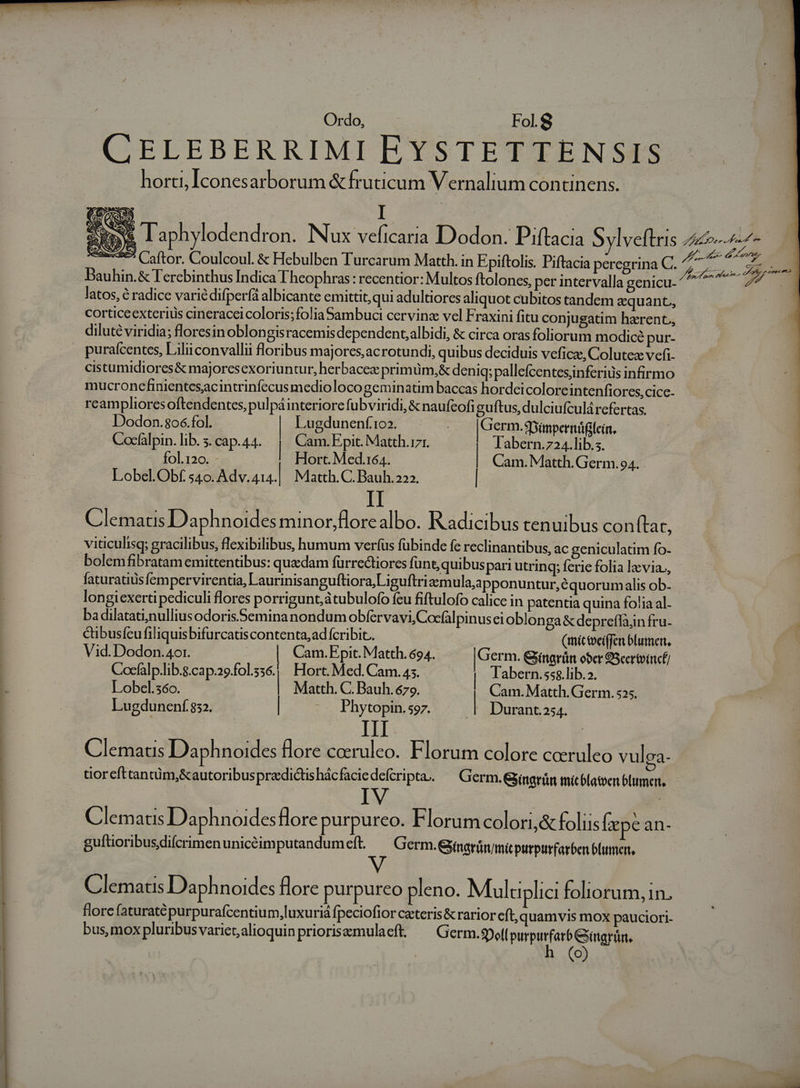 Ordo, Fol. 8
CELEBERRIMI EYSTETTENSIS
horti, Icones arborum & fruticum Vernalium continens.
I
STaphylodendron. Nux veſicaria Dodon. Piſtacia Sylveſtris
Caſtor. Coulcoul. & Hebulben Turcarum Matth. in Epiſtolis. Piſtacia peregrina C.
Bauhin. & Terebinthus Indica Theophras: recentior: Multos ſtolones, per intervalla genicu-
latos, è radice variè diſperſâ albicante emittit, qui adultiores aliquot cubitos tandem æquant,
cortice exteriùs cineracei coloris; folia Sambuci cervinæ vel Fraxini ſitu conjugatim hærent,
dilutè viridia; flores in oblongis racemis dependent, albidi, & circa oras foliorum modicè pur-
puraſcentes, Lilii convallii floribus majores, ac rotundi, quibus deciduis veſicæ, Coluteæ veſi-
cis tumidiores & majores exoriuntur, herbaceæ primùm, & deniq; palleſcentes, inferiùs infirmo
mucrone finientes, ac intrinſecus medio loco geminatim baccas hordei colore intenſiores, cice-
re ampliores oſtendentes, pulpâ interiore ſubviridi, & nauſeoſi guſtus, dulciuſculâ refertas.
Dodon. 806. fol. Lugdunenſ. 102. Germ. Pimpernüßlein.
Cœſalpin. lib. 3. cap. 44. Cam. Epit. Matth. 171. Tabern. 724. lib. 3.
fol. 120. Hort. Med. 164. Cam. Matth. Germ. 94.
Lobel. Obſ. 540. Adv. 414. Matth. C. Bauh. 222.
II
Clematis Daphnoides minor, flore albo. Radicibus tenuibus conſtat,
viticulisq; gracilibus, flexibilibus, humum verſus ſubinde ſe reclinantibus, ac geniculatim ſo-
bolem fibratam emittentibus: quædam ſurrectiores ſunt, quibus pari utrinq; ſerie folia lævia,
ſaturatiùs ſemper virentia, Laurinis anguſtiora, Liguſtri æmula, apponuntur, è quorum alis ob-
longi exerti pediculi flores porrigunt, à tubuloſo ſeu fiſtuloſo calice in patentia quina folia al-
ba dilatati, nullius odoris. Semina nondum obſervavi, Cœſalpinus ei oblonga & depreſſa, in fru-
ctibus ſeu ſiliquis bifurcatis contenta, adſcribit. (mit weiſſen blumen.
Vid. Dodon. 401. Cam. Epit. Matth. 694. Germ. Singrün oder Beerwinck/
Coeſalp. lib. 8. cap. 29. fol. 336. Hort. Med. Cam. 45. Tabern. 558. lib. 2.
Lobel. 360. Matth. C. Bauh. 679. Cam. Matth. Germ. 525.
Lugdunenſ. 832. Phytopin. 597. Durant. 254.
III
Clematis Daphnoides flore cœruleo. Florum colore cœruleo vulga-
tior eſt tantùm, & autoribus prædictis hâc facie deſcripta. Germ. Singrün mit blawen blumen.
IV
Clematis Daphnoides flore purpureo. Florum colori, & foliis ſæpè an-
guſtioribus, diſcrimen unicè imputandum eſt. Germ. Singrün/ mit purpurfarben blumen.
V
Clematis Daphnoides flore purpureo pleno. Multiplici foliorum, in
flore ſaturatè purpuraſcentium, luxuriâ ſpecioſior cæteris & rarior eſt, quamvis mox pauciori-
bus, mox pluribus variet, alioquin prioris æmula eſt. Germ. Voll purpurfarb Singrün.
h (o)